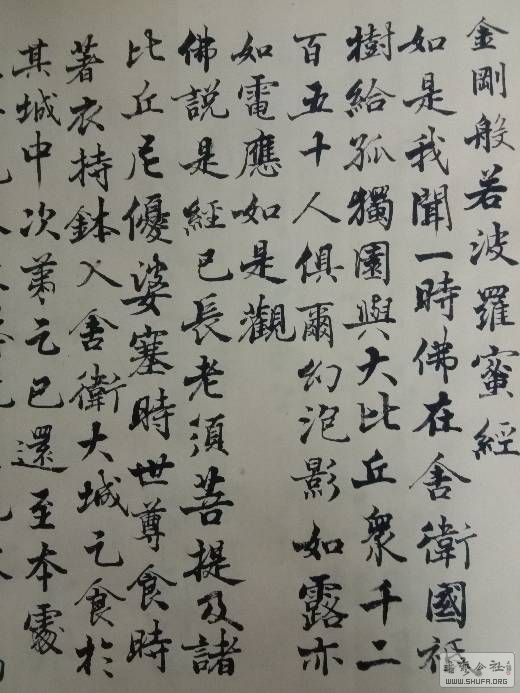 金剛般若波羅蜜經
如是我聞一時佛在舍衛國祇
樹給孤獨園與大比丘眾千二
百五十人俱爾幻泡影如露亦
如電應如是觀
佛説是經已長老須菩提及諸
比丘尼優婆塞時世尊食時
著衣持鉢入舍衛大城乞食於
其城中次第乞已還至本處
WWW.SHUFR.ORG